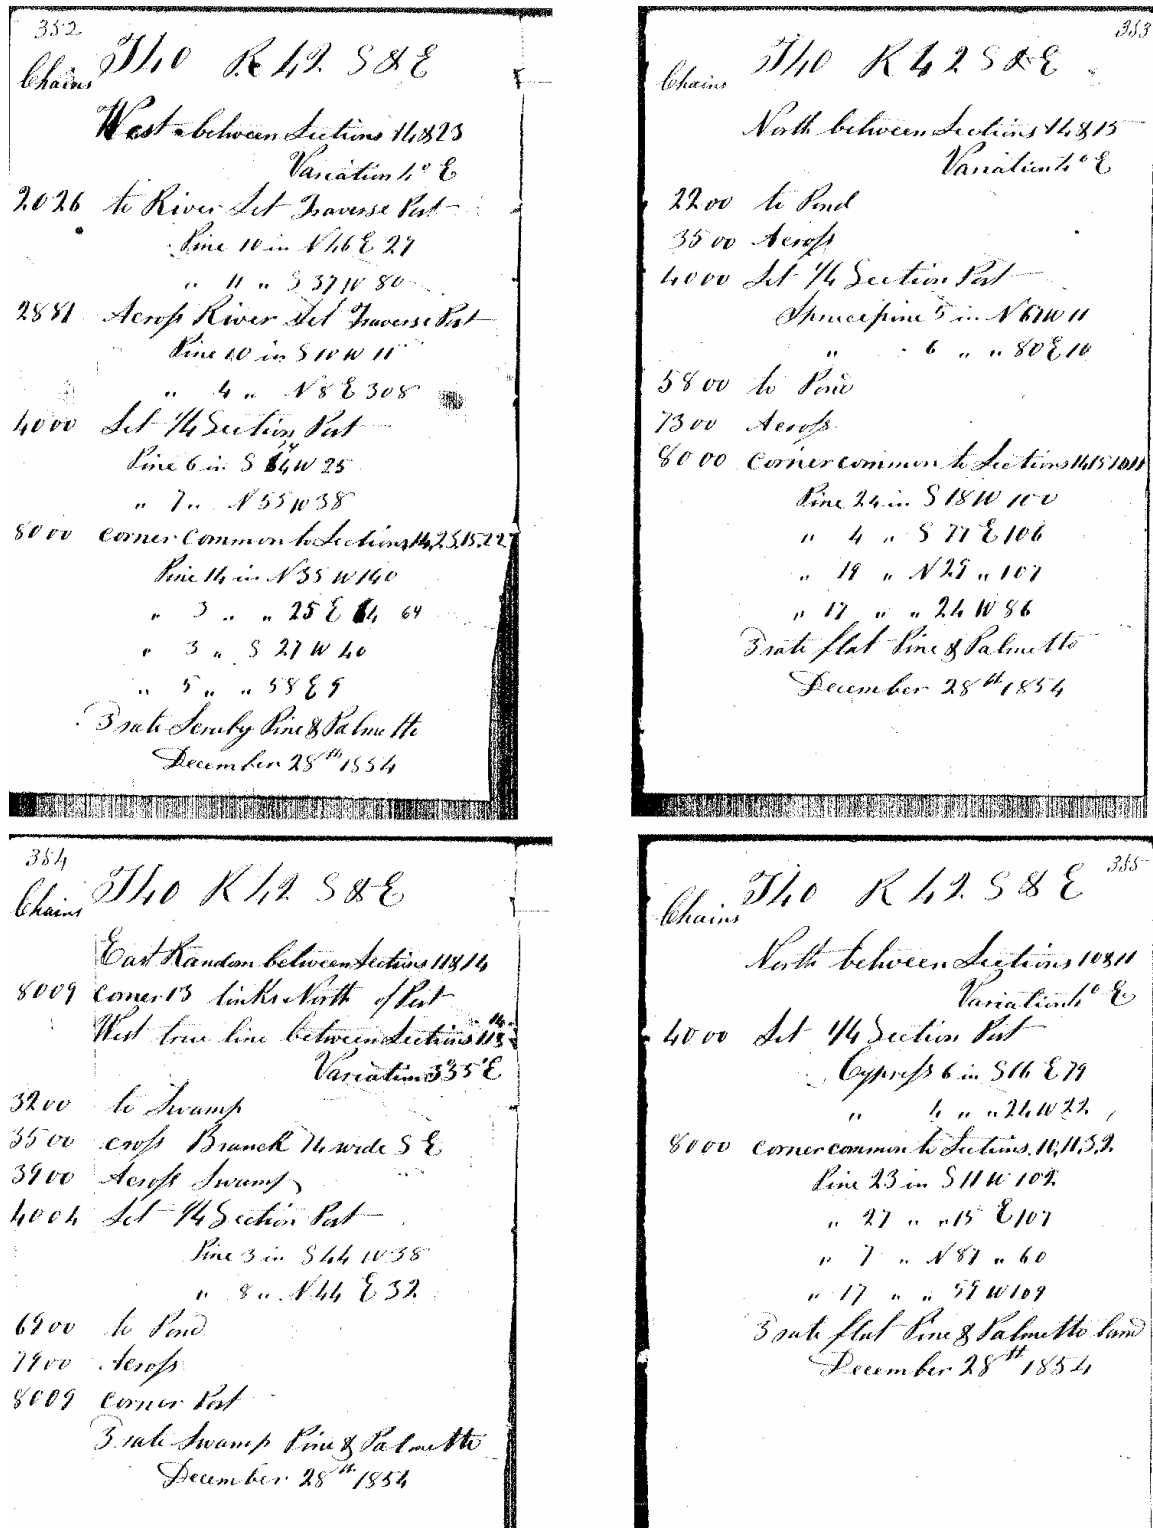 352
T40 R42 S & E
Chains
West between Sections 14&23
Variation 4° E
20 26 to River Set Traverse Post
Pine 10 in N46 E 27
" 11 " S 37 W 80
28 81 Across River Set Traverse Post
Pine 20 in S 10 W 11
" 4 " N 8 E 308
40 00 Set 1/4 Section Post
Pine 6 in S W 25
" 7 " N 55 W 38
80 00 Corner Common to Sections 14,23,15,22
Pine 14 in N35 W 140
" 3 " " 25 E 64
" 3 " S 27 W 40
" 5 " " 58 E 9
3 rate Scruby Pine & Palmetto
December 28th 1854
353
T40 R42 S & E
Chains
North between Sections 14&15
Variation 4° E
22 00 to Pond
35 00 Across
40 00 Set 1/4 Section Post
Spruce pine 5 in N 67 W 11
" 6 " " 80 E 10
58 00 to Pond
73 00 Across
80 00 Corner common to Sections 14,15,10,11
Pine 24 in S 18 W 100
" 4 " S 77 E 106
" 19 " N 29 " 107
" 17 " " 24 W 86
3 rate flat Pine & Palmetto
December 28th 1854
354
T40 R42 S & E
Chains
East Random between Sections 11&14
80 09 Corner 13 links North of Post
West true line between Sections 11& 14
Variation 3°35' E
32 00 to Swamp
35 00 cross Branch 74 wide S E
39 00 Across Swamp
40 04 Set 1/4 Section Post
Pine 3 in S44 W 38
" 8 " N44 E 32
69 00 to Pond
79 00 Across
80 09 Corner Post
3 rate Swamp Pine & Palmetto
December 28th 1854
355
T40 R42 S & E
Chains
North between Sections 10&11
Variation 4° E
40 00 Set 1/4 Section Post
Cypress 6 in S16 E 79
" 4 " " 24 W 22
80 00 Corner common to Sections 10,11,3,2
Pine 23 in S 11 W 102
" 27 " " 15 E 107
" 7 " N 87 " 60
" 17 " " 59 W 109
3 rate flat Pine & Palmetto land
December 28th 1854